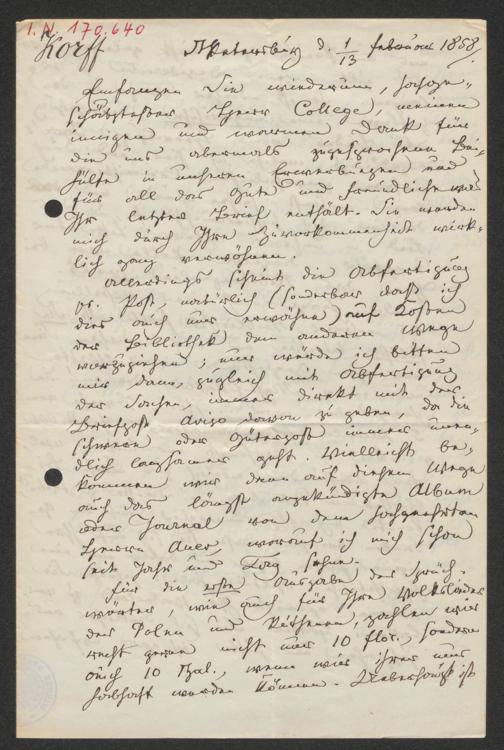 I. N. 170.640
Korff
St Petersburg d. 1/13 Februar 1858.
Empfangen Sie wiederum, hochge-
schätztester Herr College, meinen
innigen und warmen Dank für
die uns abermals zugesprochene Bei-
hülfe in unseren Erwerbungen und
für all das Gute und Freundliche was
Ihr letzter Brief enthält. Sie werden
mich durch Ihre Zuvorkommenheit wirk-
lich ganz verwöhnen.
Allerdings scheint die Abfertigung
pr. Post, natürlich (sonderbar dass ich
dies auch nur erwähne) auf Kosten
der Bibliothek dem anderen Wege
vorzuziehen; nur würde ich bitten
mir dann, zugleich mit Abfertigung
der Sachen, immer direkt mit der
Briefpost Avizo davon zu geben, da die
schwere oder Güterpost immer unen-
dlich langsamer geht. Vielleicht be-
kommen wir denn auf diesem Wege
auch das längst angekündigte Album
oder Journal von dem hochgeehrten
Herrn Auer, worauf ich mich schon
seit Jahr und Tag sehne.
Für die erste Ausgabe der Sprüch-
wörter, wie auch für Ihre Volkslieder
der Polen und Ruthenen, zahlen wir
recht gerne nicht nur 10 flor., sondern
auch 10 Thal., wenn wir ihrer nur
habhaft werden können. Ueberhaupt ist